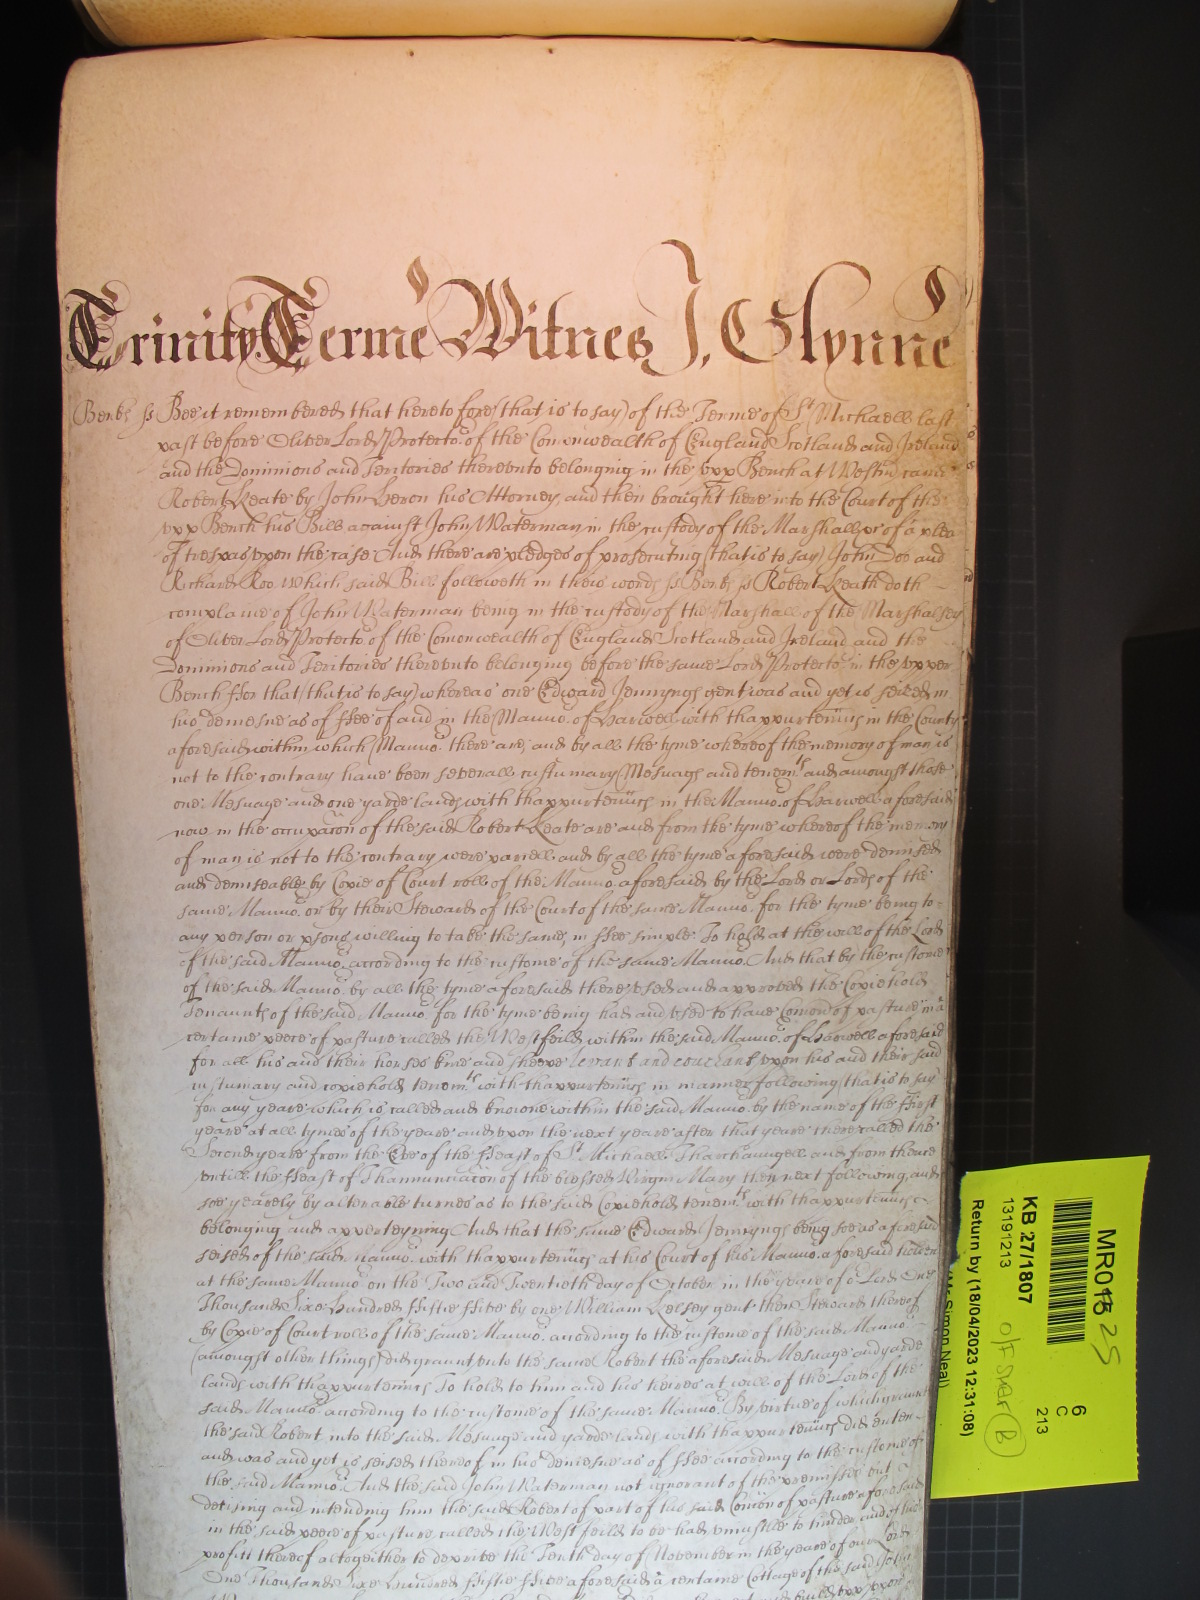 Trinity Terme Witnes J, Glynne
Berks ss Bee it remembered that heretofore (that is to say) of the Terme of St Michaell last
past before Oliver Lord Protector of the Comonwealth of England Scotland and Ireland
and the Dominions and Territories therevnto belonging in the vpp Bench at Westmr came
Robert Keate by John Heron his Attorney and then brought here into the Court of the
vpp Bench his Bill against John Waterman in the custody of the Marshall &c of a plea
of trespas vpon the case And there are pledges of prosecuting (that is to say) John Doe and
Richard Roo Which said Bill followeth in theis words ss Berks ss Robert Keate doth
complaine of John Waterman being in the custody of the Marshall of the Marshalsey
of Oliver Lord Protector of the Comonwealth of England Scotland and Ireland and the
Dominions and Territories therevnto belonging before the same Lord Protector in the vpper
Bench ffor that (that is to say) whereas one Edward Jennyngs gent was and yet is seised in
his demesne as of ffee of and in the Mannor of Harwell with thappurtenncs in the County
aforesaid within which Mannor there are and by all the tyme whereof the memory of man is
not to the contrary have been severall custumary Mesuags and tenemts and amongst those
one Mesuage and one yarde lands with thappurtenncs in the Mannor of Harwell aforesaid
now in the occupacon of the said Robert Keate are and from the tyme whereof the memory
of man is not to the contrary were parcell and by all the tyme aforesaid were demised
and demiseable by Copie of Court roll of the Mannor aforesaid by the Lord or Lords of the
same Mannor or by their Steward of the Court of the same Mannor for the tyme being to
any person or psons willing to take the same in ffee simple To hold at the will of the Lord
of the said Mannor according to the custome of the same Mannor And that by the custome
of the said Mannor by all the tyme aforesaid there vsed and approved the Copiehold
Tenaunts of the said Mannor for the tyme being had and vsed to have Comon of pasture in a
certaine peece of pasture called the West feild within the said Mannor of Harwell aforesaid
for all his and their horses kine and sheepe levant and couchant vpon his and their said
custumary and copiehold tenemts with thappurtenncs in manner following (that is to say)
for any yeare which is called and knowne within the said Mannor by the name of the ffirst
yeare at all tymes of the yeare and vpon the next yeare after that yeare there called the
Second yeare from the Eve of the ffeast of St Michaell Tharchaungell and from thence
vntill the ffeast of Thannunciacon of the blessed Virgin Mary then next following and
soe yearely by alterable turnes as to the said Copiehold tenemts with thappurtenncs
belonging and apperteyning And that the same Edward Jennyngs being soe as aforesaid
seised of the said mannor with thappurtenncs at his Court of his Mannor aforesaid holden
at the same Mannor on the Two and Twentieth day of October in the yeare of or Lord One
Thousand Sixe Hundred ffiftie ffive by one William Kelsey gent then Steward thereof
by Copie of Court roll of the same Mannor according to the custome of the said Mannor
(amongst other things) did graunt vnto the same Robert the aforesaid Mesuage and yarde
lands with thappurtenncs To hold to him and his heires at will of the Lord of the
said Mannor according to the custome of the same Mannor By virtue of which graunt
the said Robert into the said Mesuage and yarde lands with thappurtenncs did enter
and was and yet is seised thereof in his demesne as of ffee according to the custome of
the said Mannor And the said John Waterman not ignorant of the premisses but
devising and intending him the said Robert of part of his said Comon of pasture aforesaid
in the said peece of pasture called the West feild to be had to hinder and of the
profitt thereof altogeither to deprive the Tenth day of November in the yeare of our Lord
One Thousand Sixe Hundred ffiftie ffive aforesaid a certaine Cottage of the said John
MR013 25
KB 27/1807
13191213
Return by (18/04/2023 12:31:08)
6
C
213
B
Simon Neal)